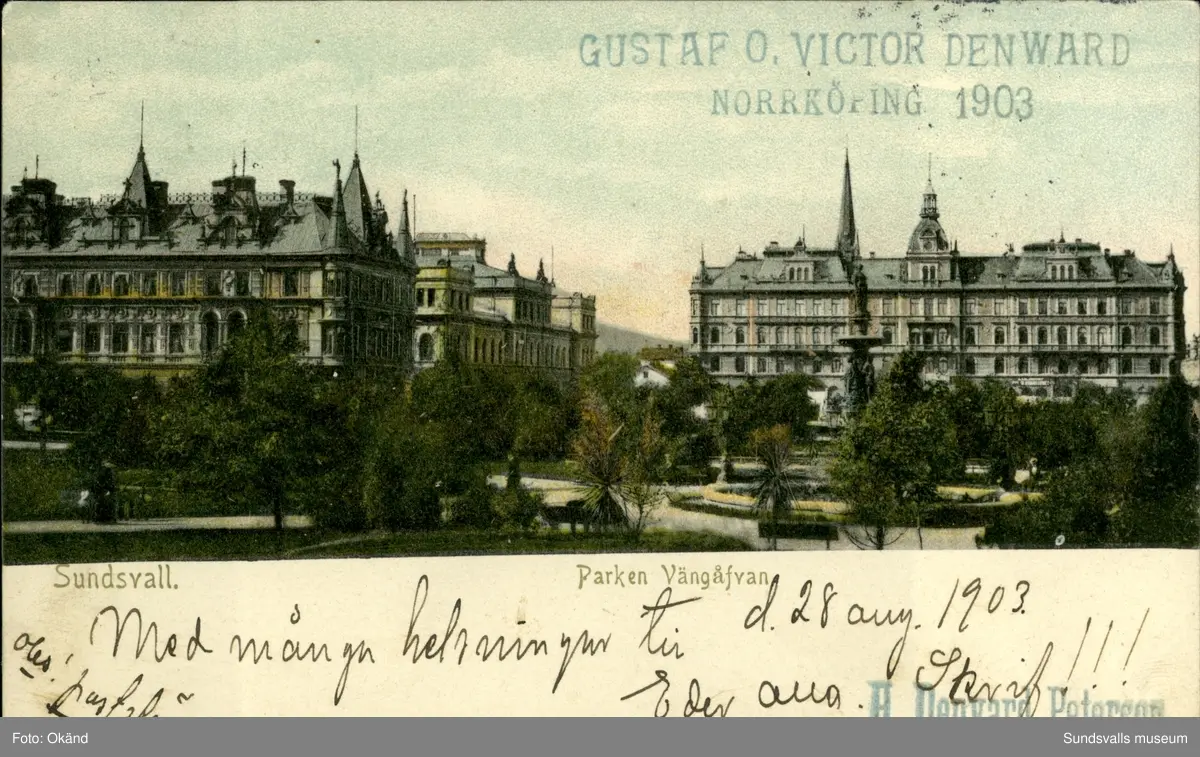 GUSTAF O. VICTOR DENWARD
NORRKÖPING 1903
Sundsvall.
Parken Vängåfvan
d. 28 aug. 1903.
Med många helsningar till
Eder alla. Skrif!!!
obs!
H. Denvard Peterson
Foto: Okänd
Sundsvalls museum